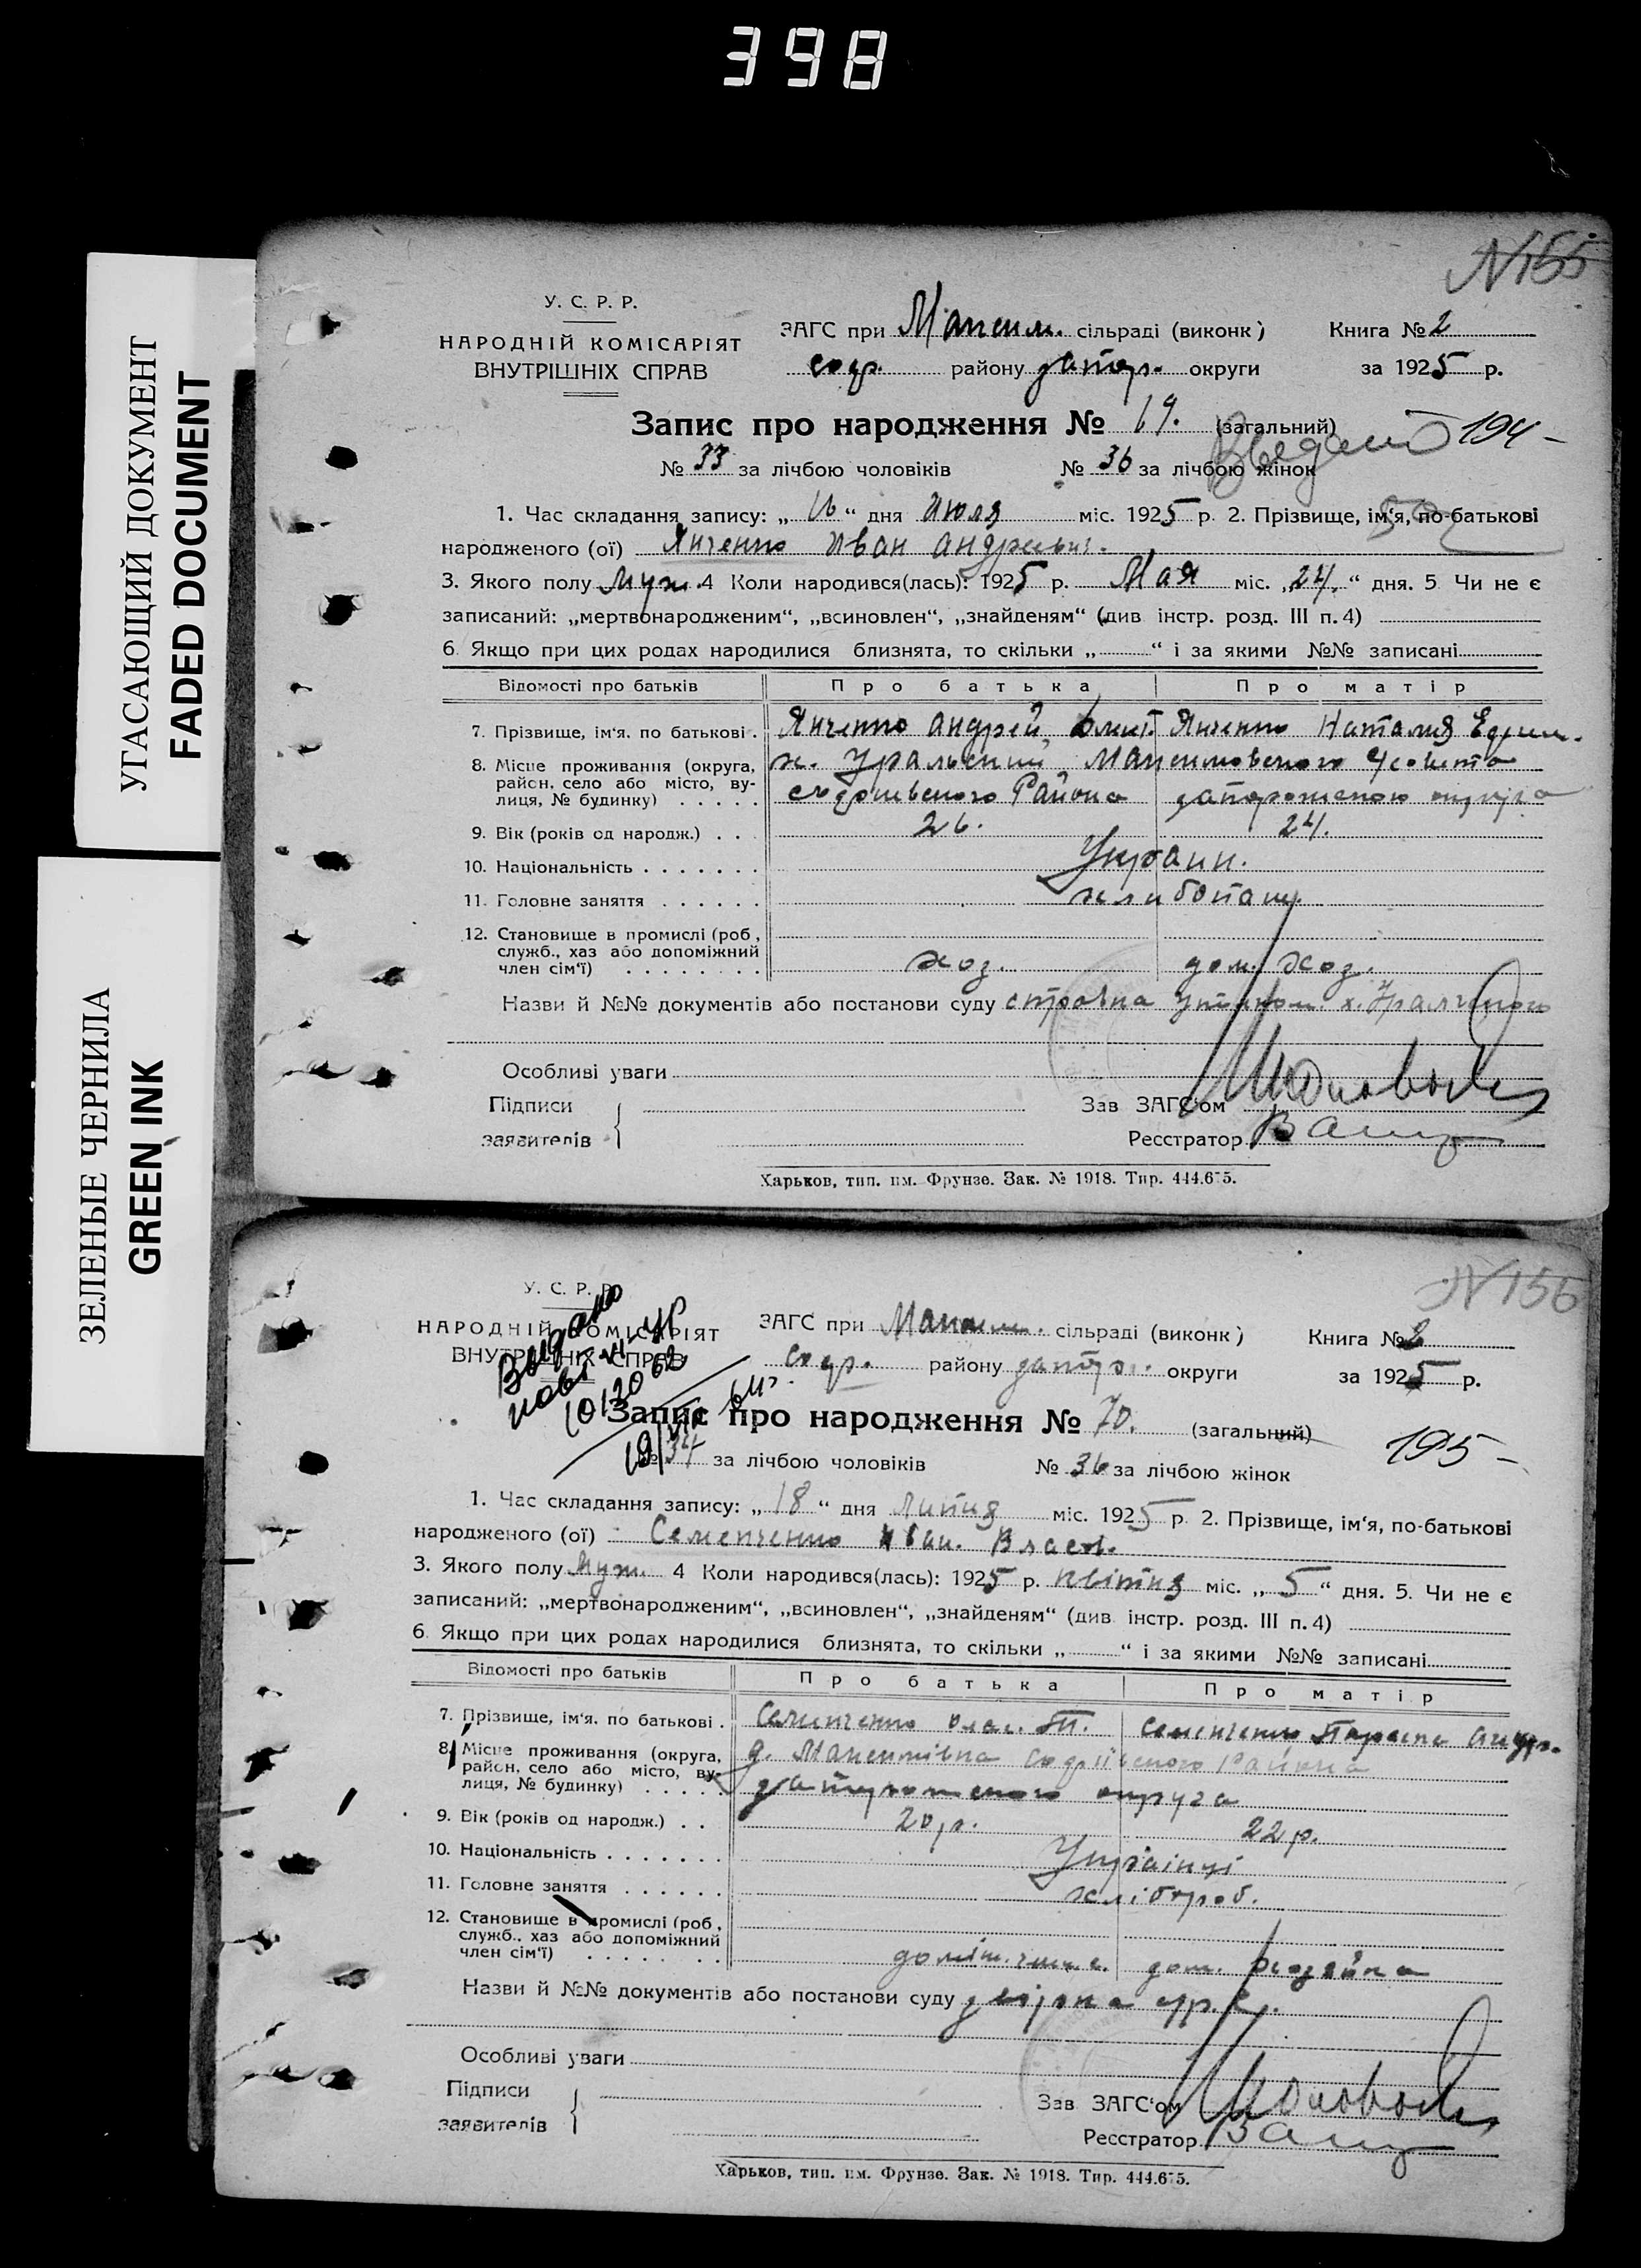 398
УГАСАЮЩИЙ ДОКУМЕНТ
FADED DOCUMENT
ЗЕЛЕНЫЕ ЧЕРНИЛА
GREEN INK
N155
У. С. Р. Р.
НАРОДНІЙ КОМІСАРІЯТ
ВНУТРІШНІХ СПРАВ
ЗАГС при Максим. сільраді (виконк)
соф. району запор. округи
Книга № 2
за 1925 р.
Запис про народження № 69. (загальний) 194 –
№ 33 за лічбою чоловіків № 36 за лічбою жінок
1. Час складання запису: „16“ дня Июля міс. 1925 р. 2. Прізвище, ім‘я, по-батькові
народженого (ої) Янченко Иван Андреевич.
3. Якого полу Муж. 4 Коли народився(лась): 1925 р. Мая міс. „24.“ дня. 5 Чи не є
записаний: „мертвонародженим“, „всиновлен“, „знайденям“ (див інстр. розд. III п. 4)
6. Якщо при цих родах народилися близнята, то скільки „ “ і за якими №№ записані
Відомості про батьків Про батька Про матір
7. Прізвище, ім‘я. по батькові. Янченко Андрей Янченко Наталия Ефим.
8. Місце проживання (округа, район, село або місто, вулиця, № будинку) х. Уральский Максимовского
Района запорожского округа
9. Вік (років од народж.) 26. 24.
10. Національність Украин.
11. Головне заняття
12. Становище в промислі (роб, служб., хаз або допоміжний член сім‘ї) хоз. дом. хоз.
Назви й №№ документів або постанови суду
Особливі уваги
Підписи
заявителів
Зав ЗАГС‘ом
Реєстратор
Харьков, тип. им. Фрунзе. Зак. № 1918. Тир. 444.675.
N156
У. С. Р. Р.
НАРОДНІЙ КОМІСАРІЯТ
ВНУТРІШНІХ СПРАВ
Выдано
ЗАГС при Максим. сільраді (виконк)
соф. району запор. округи
Книга № 2
за 1925 р.
Запис про народження № 70. (загальний) 195 –
№ 34 за лічбою чоловіків № 36 за лічбою жінок
1. Час складання запису: „18“ дня Липня міс. 1925 р. 2. Прізвище, ім‘я, по-батькові
народженого (ої) Семенченко Иван. Власов.
3. Якого полу Муж. 4 Коли народився(лась): 1925 р. Квітня міс. „5“ дня. 5. Чи не є
записаний: „мертвонародженим“, „всиновлен“, „знайденям“ (див інстр. розд. III п. 4)
6. Якщо при цих родах народилися близнята, то скільки „ “ і за якими №№ записані
Відомості про батьків Про батька Про матір
7. Прізвище, ім‘я. по батькові. Семенченко Влас. Семенченко
8. Місце проживання (округа, район, село або місто, вулиця, № будинку) Района
запорожского округа
9. Вік (років од народж.) 20 р. 22 р.
10. Національність Українці
11. Головне заняття хлібороб.
12. Становище в промислі (роб, служб., хаз або допоміжний член сім‘ї) дом. хозяйка
Назви й №№ документів або постанови суду
Особливі уваги
Підписи
заявителів
Зав ЗАГС‘ом
Реєстратор
Харьков, тип. им. Фрунзе. Зак. № 1918. Тир. 444.675.